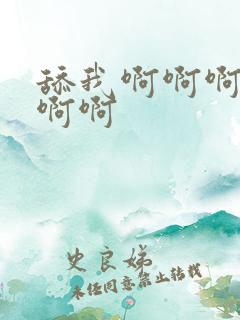 舔我 啊啊啊
啊啊
史良娣
未经同意禁止转载